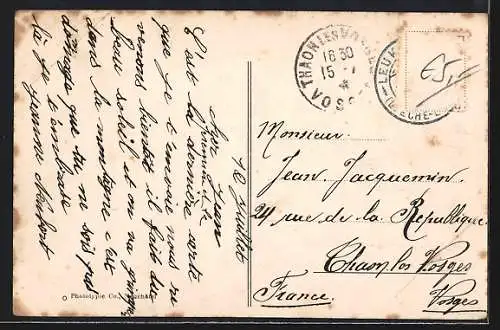 10 juillet
Mon Jean
C'est la dernière carte
que je t'envoie nous re
venons bientôt il fait du
beau soleil et on va grimper
dans la montagne c'est
dommage que tu ne sois pas
là je t'embrasse
Jeanne
Monsieur
Jean Jacquemin
24 rue de la République
Thaon les Vosges
France. Vosges
THAON LES VOSGES
18 30
15 -
VOSGES
LEUK
65,-
Phototypie Co., Neuchâtel